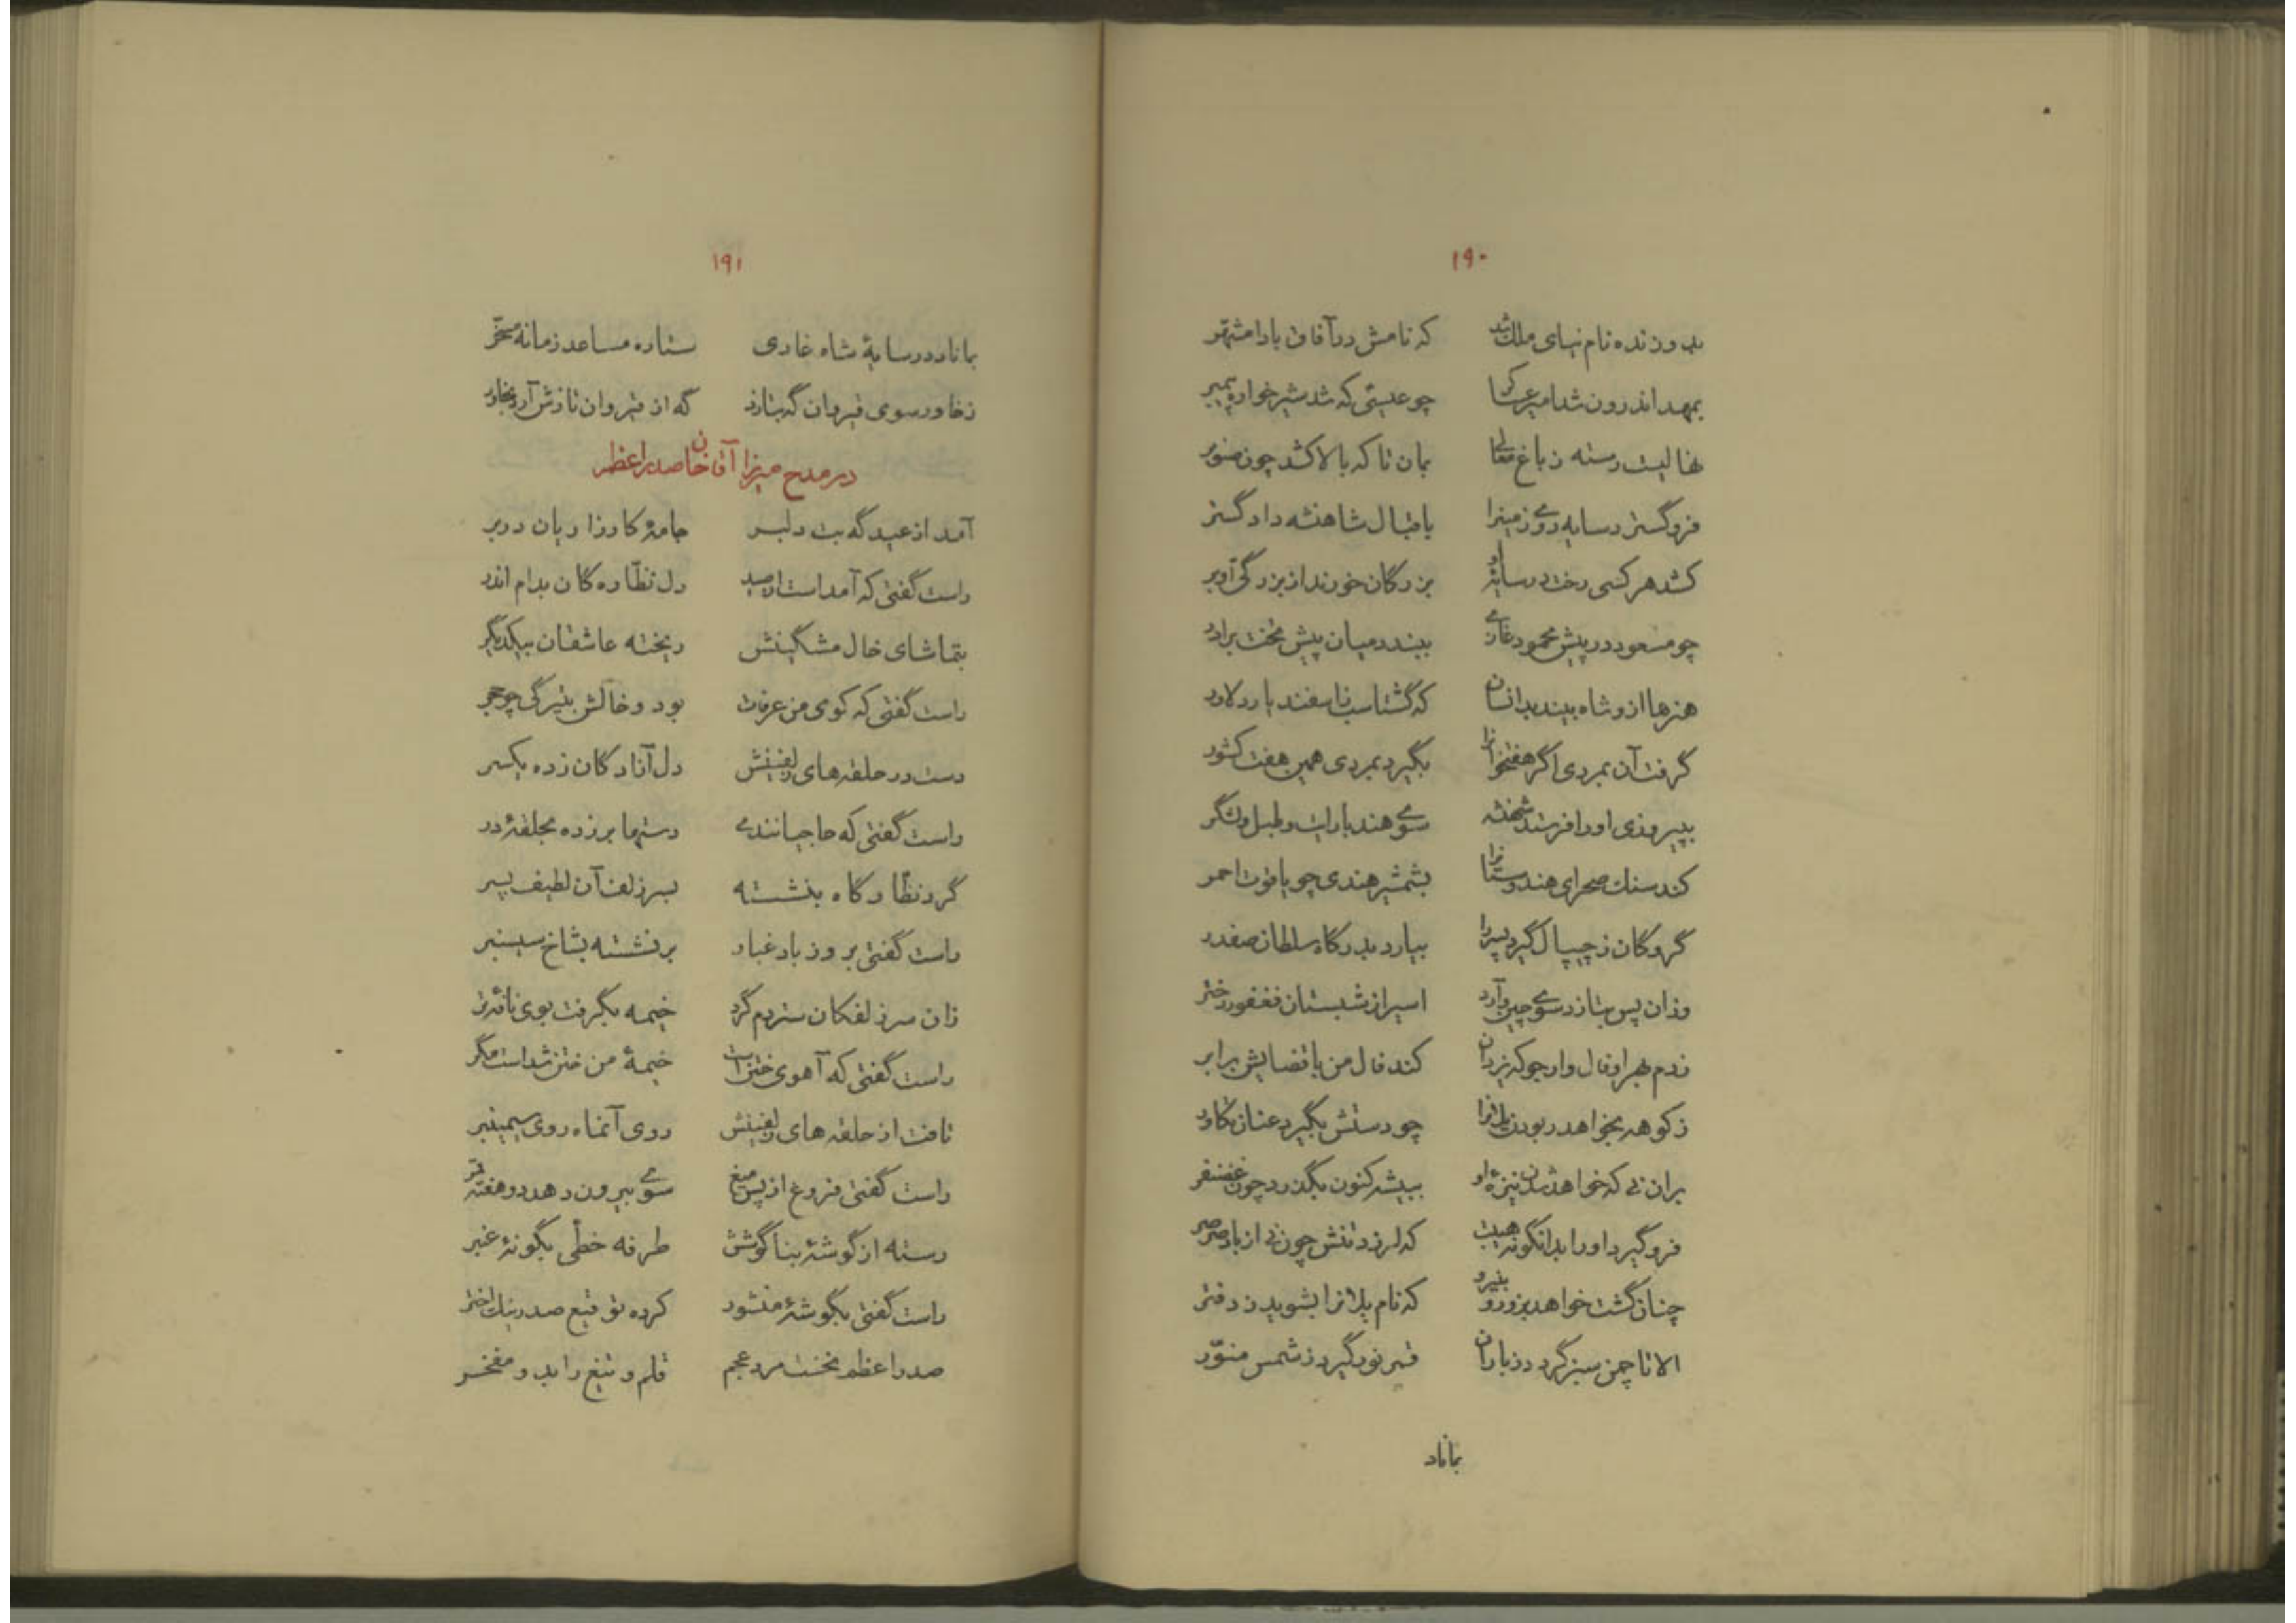 ۱۹۰
بدو زنده نام نیای ملک شد که نامش در آفاق بادا مشتهر
بمهد اندرون شد امیر عرب را چو عیسی که شد شیرخواره پیمبر
نهالیست رسته ز باغ معالی بمان تا که بالا کشد چون صنوبر
فرو گسترد سایه روی زمین را باقبال شاهنشه دادگستر
کشد هر کسی رخت در سایهٔ او بزرگان خورند از بزرگی او بر
چو مسعود در پیش محمود غازی ببندد میان پیش تخت برادر
هنرها ازو شاه بیند بدانسان که گشتاسب ناسفندیار دلاور
گرفت آن بمردی اگر هفتخوانرا بگیرد بمردی همین هفت کشور
بپیروزی او را فرستد شهنشه سوی هند با رایت و طبل و لشگر
کند سنک صحرای هندوستانرا بشمشیر هندی چو یاقوت احمر
گروگان ز چیپال گیرد پسر را بیارد بدرگاه سلطان صفدر
وزان پس بتازد سوی چین و آرد اسیر از شبستان فغفور دختر
زدم بهر او فال وارجو که یزدان کند فال من با قضایش برابر
ز کوهه بخواهد ربودن یلانرا چو دستش بگیرد عنان تکاور
بران نی که خواهد شدن نیزهٔ او ببیشه کنون بگذرد چون غضنفر
فرو گیرد او را بدانگونه هیبت که لرزد تنش چون نی از باد صرصر
چنان گشت خواهد بزور و بنیرو که نام یلانرا بشوید ز دفتر
الا تا چمن سبز گردد ز باران قمر نور گیرد ز شمس منوّر
بماناد
۱۹۱
بماناد در سایهٔ شاه غازی ستاره مساعد زمانه مسخّر
ز خاور سوی قیروان گه بتازد گه از قیروان تازش آرد بخاور
در مدح میرزا آقا خان صدر اعظم
آمد از عید گه بت دلبر جامهٔ کاورزا ریان در بر
راست گفتی که آمد است از صید دل نظّاره گان بدام اندر
بتماشای خال مشگینش ریخته عاشقان بیکدیگر
راست گفتی که کوی من عرفات بود و خالش بتیرگی چو حجر
دست در حلقه های زلفینش دل آزادگان زده یکسر
راست گفتی که حاجیانندی دستها بر زده بحلقهٔ در
گرد نظّارگاه بنشسته بسر زلف آن لطیف پسر
راست گفتی بروز باد غبار بر نشسته بشاخ سیسنبر
زان سر زلفکان ستردم گرد خیمه بگرفت بوی نافهٔ تر
راست گفتی که آهوی ختن است خیمهٔ من ختن شداست مگر
تافت از حلقه های زلفینش روی آنماه روی سیمینبر
راست گفتی فروغ از پس میغ سوی بیرون دهد دو هفته قمر
رسته از گوشهٔ بناگوشش طرفه خطّی بگونهٔ عنبر
راست گفتی بگوشهٔ منشور کرده توقیع صدر نیک اختر
صدر اعظم نخست مرد عجم قلم و تیغ را بدو مفخر